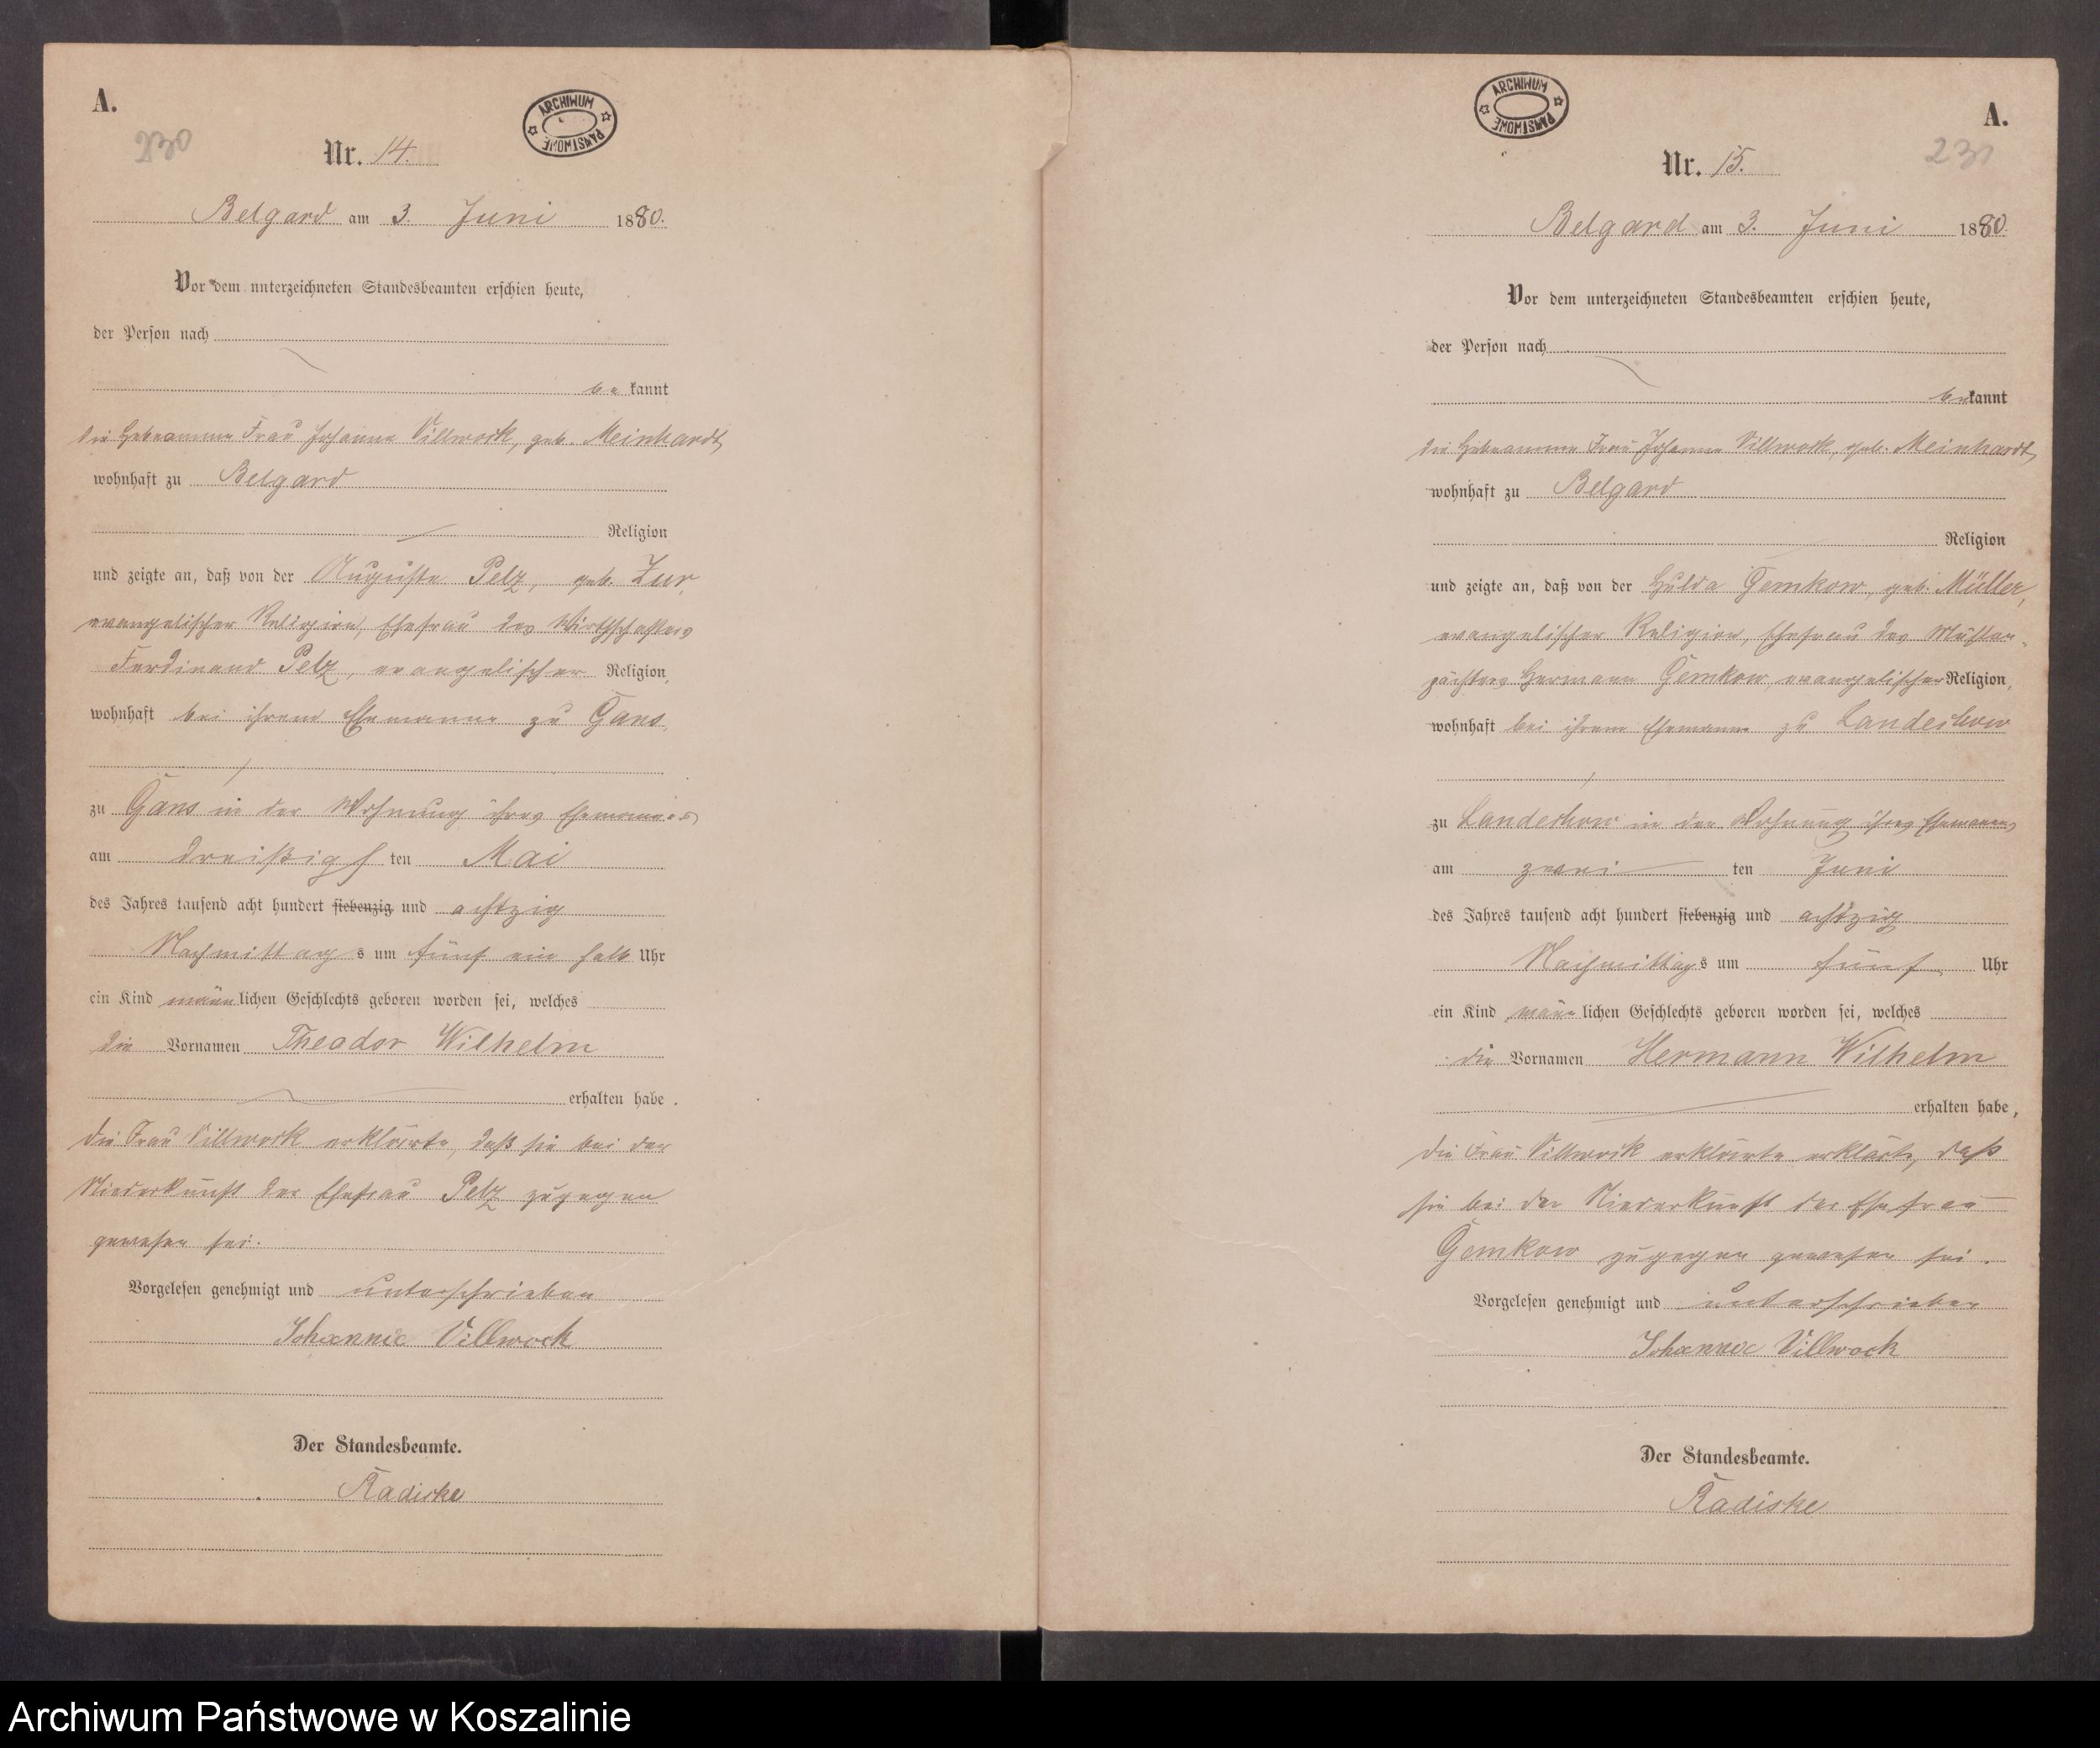 A.
230
ARCHIWUM PAŃSTWOWE
Nr. 14.
Belgard am 3. Juni 1880.
Vor dem unterzeichneten Standesbeamten erschien heute,
der Person nach
be kannt
die Hebeamme Frau Johanna Villwock, geb. Meinhardt,
wohnhaft zu Belgard
Religion
und zeigte an, daß von der Auguste Pelz, geb. Zur,
evangelischer Religion, Ehefrau des Wirthschafters
Ferdinand Pelz, evangelischer Religion,
wohnhaft bei ihrem Ehemanne zu Gans,
zu Gans in der Wohnung ihres Ehemannes
am dreißigs ten Mai
des Jahres tausend acht hundert siebenzig und achtzig
Nachmittag s um fünf ein halb Uhr
ein Kind männ lichen Geschlechts geboren worden sei, welches
die Vornamen Theodor Wilhelm
erhalten habe.
Die Frau Villwock erklärte, daß sie bei der
Niederkunft der Ehefrau Pelz zugegen
gewesen sei.
Vorgelesen genehmigt und unterschrieben
Johanna Villwock
Der Standesbeamte.
Radiske
ARCHIWUM PAŃSTWOWE
A.
231
Nr. 15.
Belgard am 3. Juni 1880.
Vor dem unterzeichneten Standesbeamten erschien heute,
der Person nach
be kannt
die Hebeamme Frau Johanna Villwock, geb. Meinhardt,
wohnhaft zu Belgard
Religion
und zeigte an, daß von der Hulda Gemkow, geb. Müller,
evangelischer Religion, Ehefrau des Mühlen-
pächters Hermann Gemkow, evangelischer Religion,
wohnhaft bei ihrem Ehemanne zu Landechow
zu Landechow in der Wohnung ihres Ehemannes
am zwei ten Juni
des Jahres tausend acht hundert siebenzig und achtzig
Nachmittag s um fünf Uhr
ein Kind männ lichen Geschlechts geboren worden sei, welches
die Vornamen Hermann Wilhelm
erhalten habe,
Die Frau Villwock erklärte erklärte, daß
sie bei der Niederkunft der Ehefrau
Gemkow zugegen gewesen sei.
Vorgelesen genehmigt und unterschrieben
Johanna Villwock
Der Standesbeamte.
Radiske
Archiwum Państwowe w Koszalinie